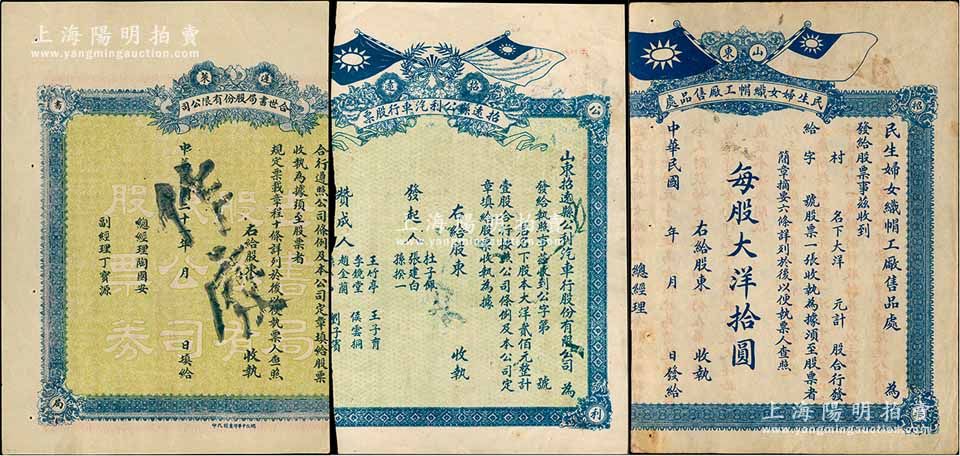 上海陽明拍賣
www.yangmingauction.com
蓬萊
合世書局股份有限公司
書
局
合行遵照公司條例及本公司定章填給股票
收執為據須至股票者
規定票載章程十條詳列於後以便執票人查照
右給股東 收執
中華 二十 年 月 日填給
總經理陶國安
副經理丁寶源
股票公司券
上海陽明拍賣
www.yangmingauction.com
招遠
招遠縣公利汽車行股票
公
利
山東招遠縣公利汽車行股份有限公司 為
發給執照 公字第 號
名下股本大洋貳佰元整計
壹股合行 照公司條例及本公司定
章填給股票收執為據
右給股東 收執
發起人
杜子佩
張建白
孫揆一
贊成人
王竹亭
李曉堂
趙金蘭
王子育
侯雲桐
上海陽明拍賣
www.yangmingauction.com
山東
民生婦女織帽工廠售品處
招
民生婦女織帽工廠售品處 為
發給股票事茲收到
村 名下大洋 元計 股合行發
給 字 號股票一張收執為據須至股票者
簡章摘要六條詳列於後以便執票人查照
每股大洋拾圓
右給股東 收執
中華民國 年 月 日發給
總經理
上海陽明拍賣
www.yangmingauction.com